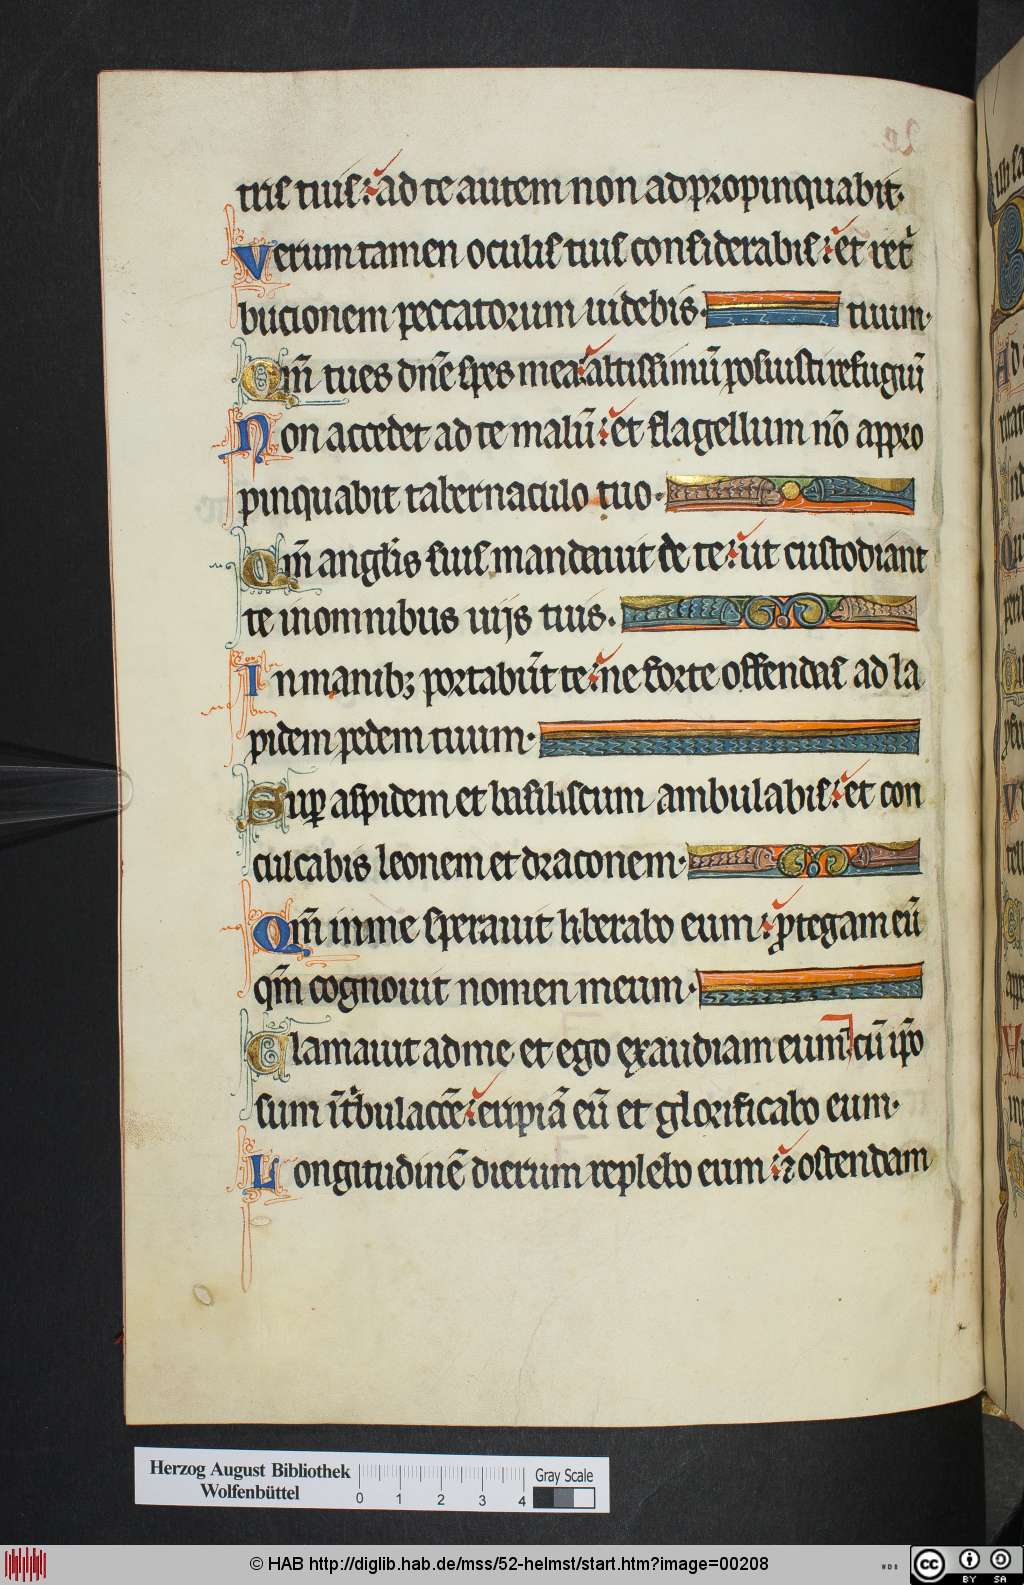 tris tuis: ad te autem non adpropinquabit.
Verumtamen oculis tuis considerabis: et ret͛
bucionem peccatorum uidebis. tuum.
Qm̄ tu es dn̄e spes mea: altissimū posuisti refugiū
Non accedet ad te malū: et flagellum nō appro
pinquabit tabernaculo tuo.
Qm̄ angl̄is suis mandauit de te: ut custodiant
te in omnibus uijs tuis.
In manibꝫ portabūt te: ne forte offendas ad la
pidem pedem tuum.
Suꝑ aspidem et basiliscum ambulabis: et con
culcabis leonem et draconem.
Qm̄ in me sperauit liberabo eum: ꝓtegam eū
qm̄ cognouit nomen meum.
Clamauit ad me et ego exaudiam eum cū ip̄o
sum ī tͥbulac̄c̄e: eripiā eū et glorificabo eum.
Longitudinē dierum replebo eum: ⁊ ostendam
Herzog August Bibliothek
Wolfenbüttel
0 1 2 3 4
Gray Scale
© HAB http://diglib.hab.de/mss/52-helmst/start.htm?image=00208
cc BY SA